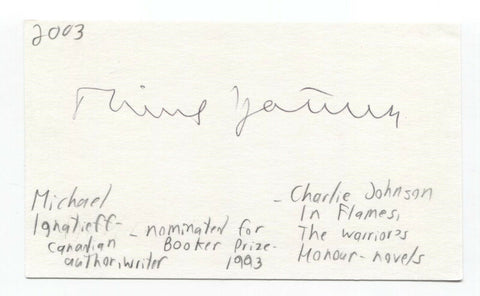 2003
Michael
Ignatieff-
canadian
author, writer
- nominated for
Booker Prize-
1993
- Charlie Johnson
In Flames,
The Warrior's
Honour - novels